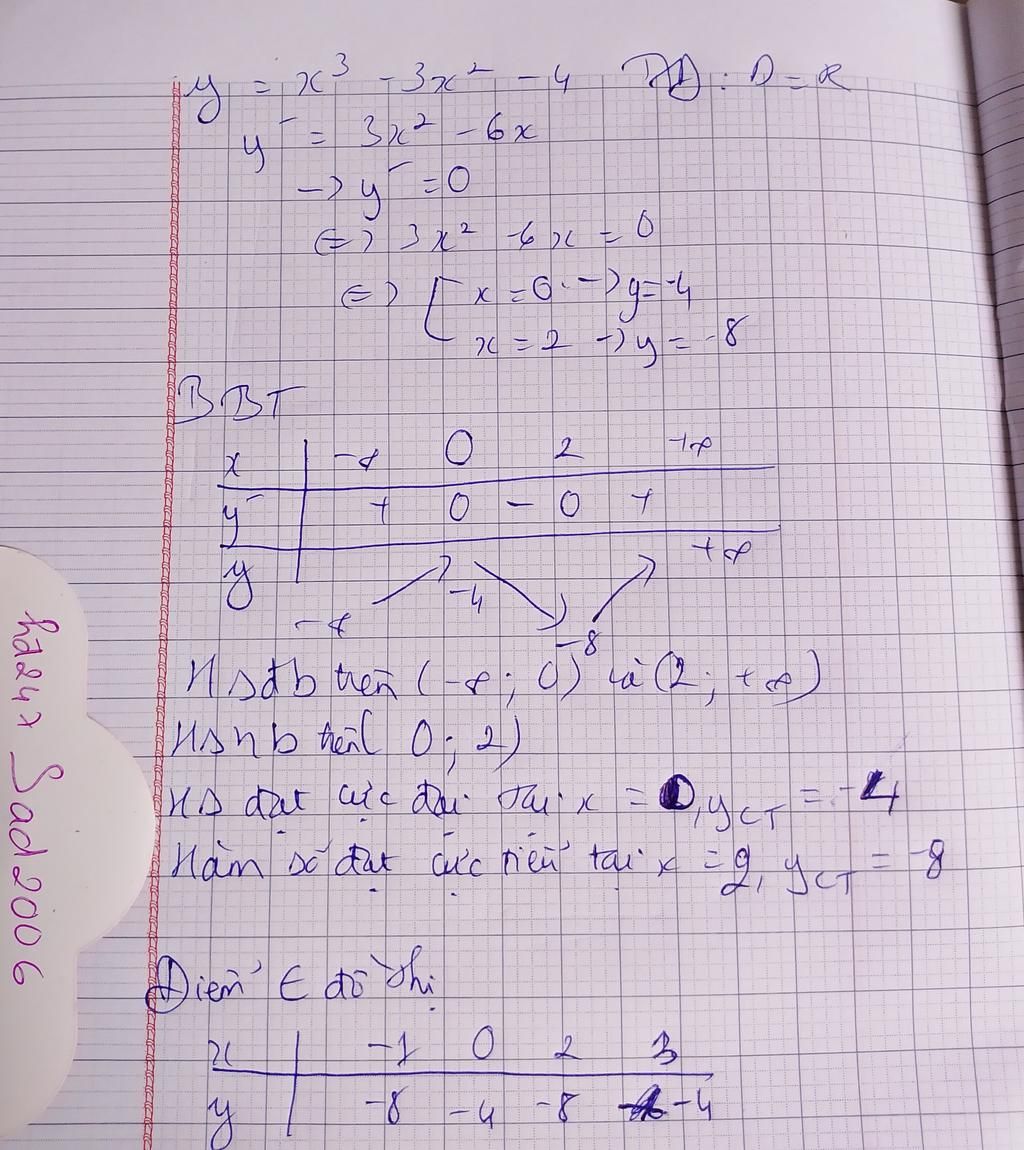 y = x³ - 3x² - 4 TXĐ: D = R
y' = 3x² - 6x
→ y' = 0
⇔ 3x² - 6x = 0
⇔ [ x = 0 → y = -4
x = 2 → y = -8
BBT
x | -∞ 0 2 +∞
y' | + 0 - 0 +
y | +∞
-4
-∞ -8
HS đb trên (-∞; 0) và (2; +∞)
HS nb trên (0; 2)
HS đạt cực đại tại x = 0, yCT = -4
Hàm số đạt cực tiểu tại x = 2, yCT = -8
Điểm ∈ đồ thị
x | -1 0 2 3
y | -8 -4 -8 -4
ha24x Sad2006